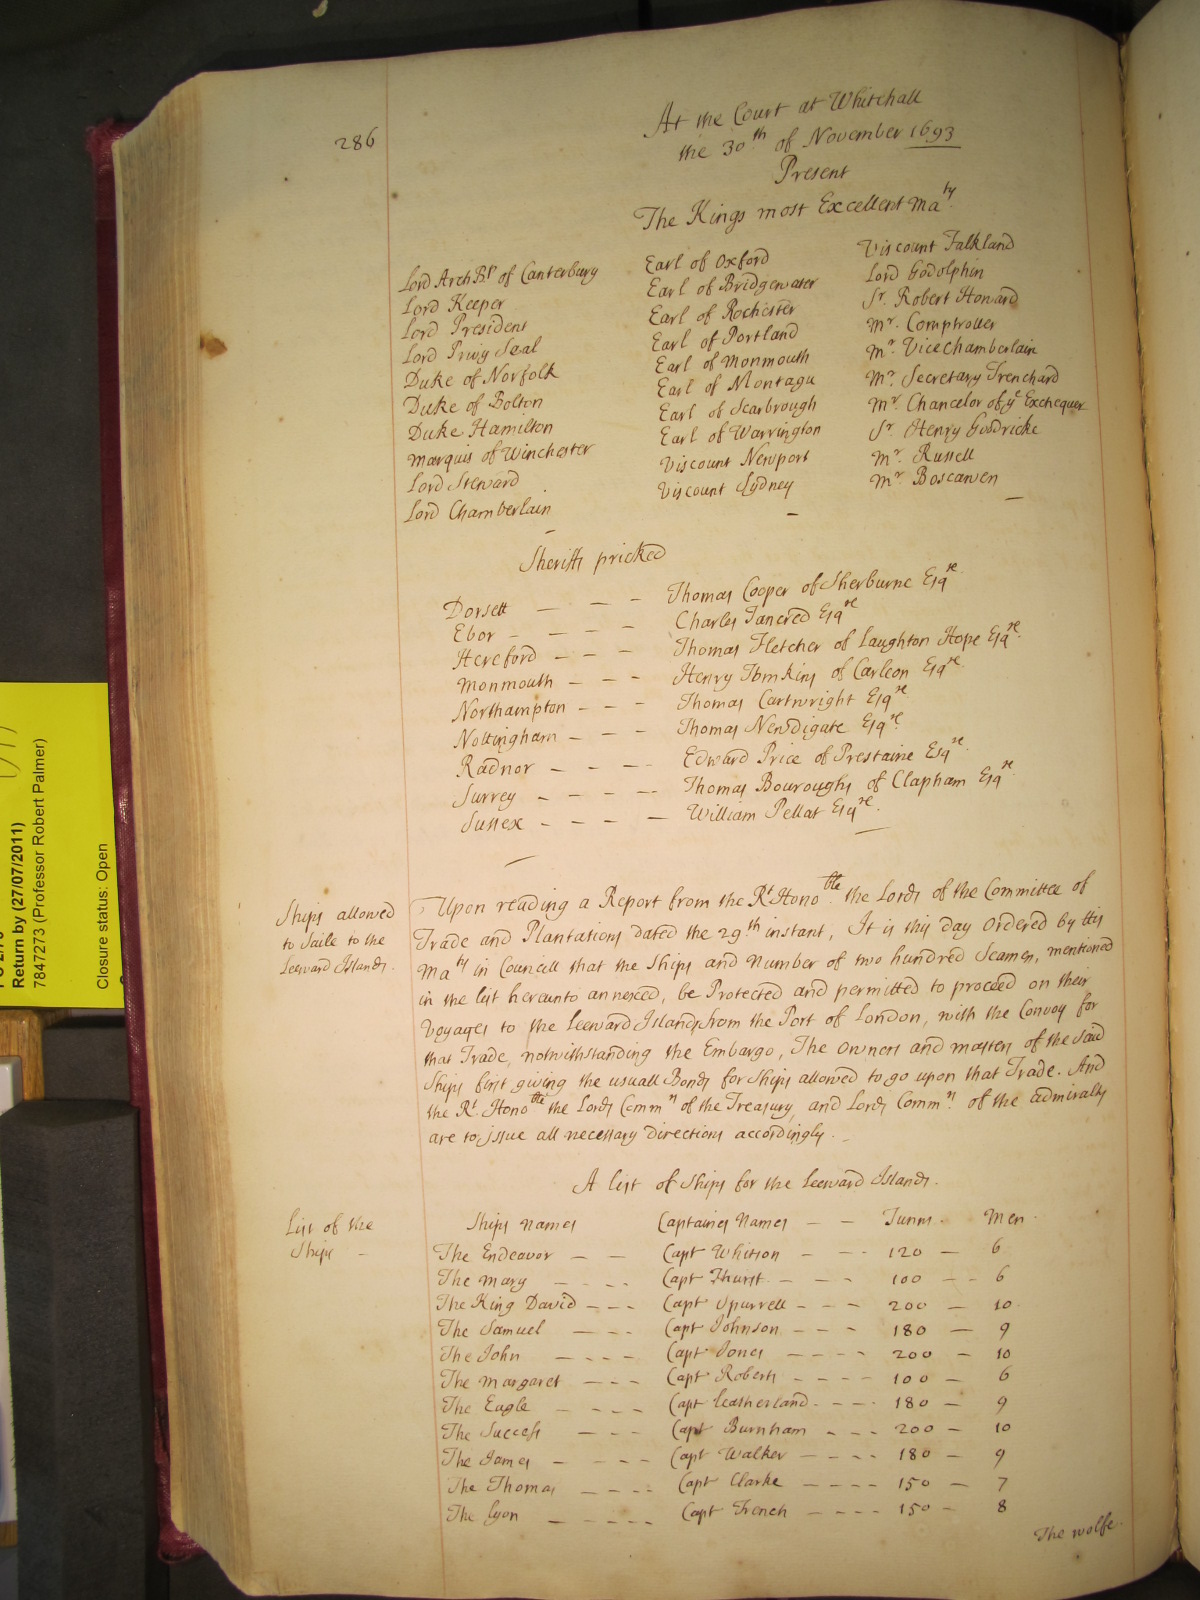 286
At the Court at Whitehall
the 30th of November 1693
Present
The Kings most Excellent Maty
Lord ArchBp of Canterbury
Lord Keeper
Lord President
Lord Privy Seal
Duke of Norfolk
Duke of Bolton
Duke Hamilton
Marquis of Winchester
Lord Steward
Lord Chamberlain
Earl of Oxford
Earl of Bridgewater
Earl of Rochester
Earl of Portland
Earl of Monmouth
Earl of Montagu
Earl of Scarbrough
Earl of Warrington
Viscount Newport
Viscount Sydney
Viscount Falkland
Lord Godolphin
Sr. Robert Howard
Mr. Comptroller
Mr. Vicechamberlain
Mr. Secretary Trenchard
Mr. Chancelor of ye Exchequer
Sr. Henry Goodricke
Mr. Russell
Mr. Boscawen
Sheriffs pricked
Dorsett - - - Thomas Cooper of Sherburne Esqre.
Ebor - - - - Charles Tancred Esqre
Hereford - - - Thomas Fletcher of Laughton Hope Esqre.
Monmouth - - - Henry Tomkins of Carleon Esqre.
Northampton - - - Thomas Cartwright Esqre
Nottingham - - - Thomas Newdigate Esqre.
Radnor - - - - Edward Price of Prestaine Esqre.
Surrey - - - - Thomas Bouroughs of Clapham Esqre.
Sussex - - - - William Pellat Esqre.
Ships allowed
to Saile to the
Leeward Islands.
Upon reading a Report from the Rt. Honoble. the Lords of the Committee of
Trade and Plantations dated the 29th instant, It is this day Ordered by His
Maty in Councell that the Ships and Number of two hundred Seamen, mentioned
in the list hereunto annexed, be Protected and permitted to proceed on their
Voyages to the Leeward Islands from the Port of London, with the Convoy for
that Trade, notwithstanding the Embargo, The Owners and Masters of the said
Ships first giving the usuall Bonds for Ships allowed to go upon that Trade. And
the Rt. Honoble the Lords Commrs of the Treasury, and Lords Commrs. of the Admiralty
are to issue all necessary Directions accordingly.
A list of Ships for the Leeward Islands.
List of the
Ships -
Ships Names Captaines Names - - Tunns. Men
The Endeavor - - Capt Whitson - - - 120 - 6
The Mary - - - - Capt Thurst - - - 100 - - 6
The King David - - - Capt Spurrell - - - 200 - 10
The Samuel - - - Capt Johnson - - - 180 - 9
The John - - - - Capt Jones - - - - 200 - 10
The Margaret - - - Capt Roberts - - - - 100 - 6
The Eagle - - - - Capt Leatherland - - - 180 - 9
The Success - - - Capt Burnham - - - 200 - 10
The James - - - - Capt Walker - - - - 180 - 9
The Thomas - - - - Capt Clarke - - - - 150 - 7
The Lyon - - - - - Capt French - - - - 150 - 8
The Wolfe
Return by (27/07/2011)
7847273 (Professor Robert Palmer)
Closure status: Open